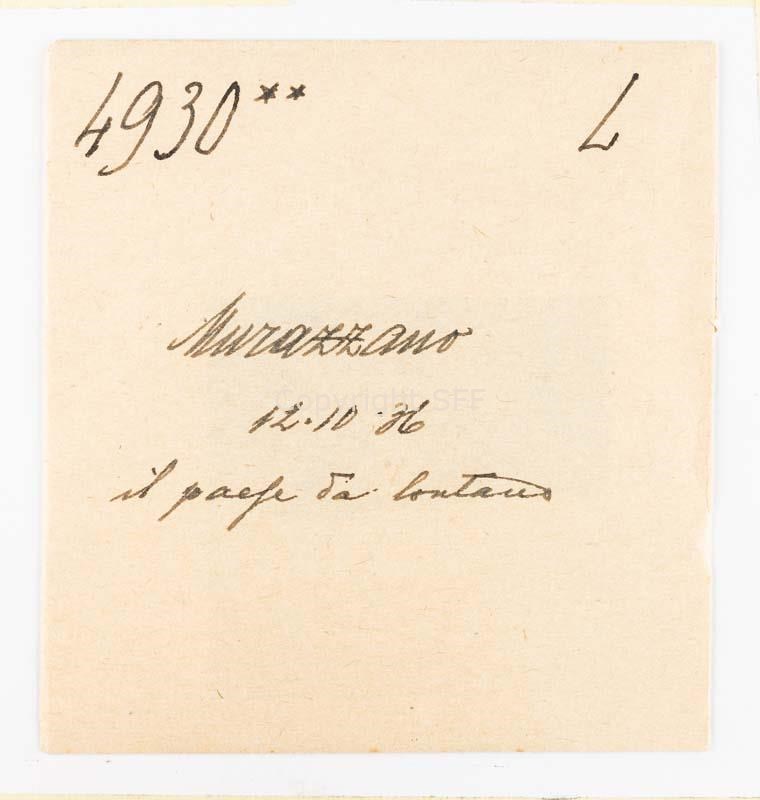 4930** L
Murazzano
Copyright SFF
12.10.36
il paese da lontano